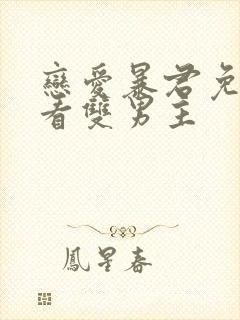 戀愛暴君免
看雙男主
鳳星春